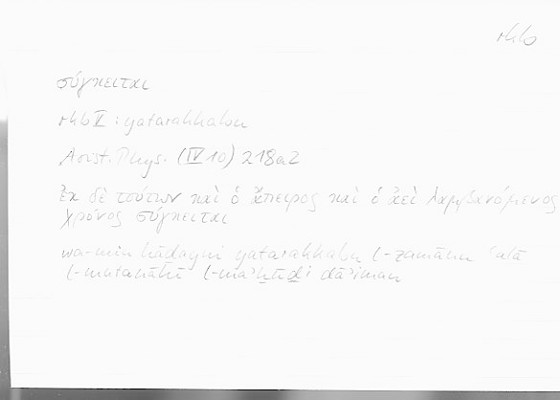 rkb
σύγκειται
rkb V : yatarakkabu
Arist. Phys. (IV 10) 218a2
Ἐκ δὲ τούτων καὶ ὁ ἄπειρος καὶ ὁ ἀεὶ λαμβανόμενος
χρόνος σύγκειται
wa-min hāḏayni yatarakkabu l-zamānu
l-maʾḫūḏi dāʾiman